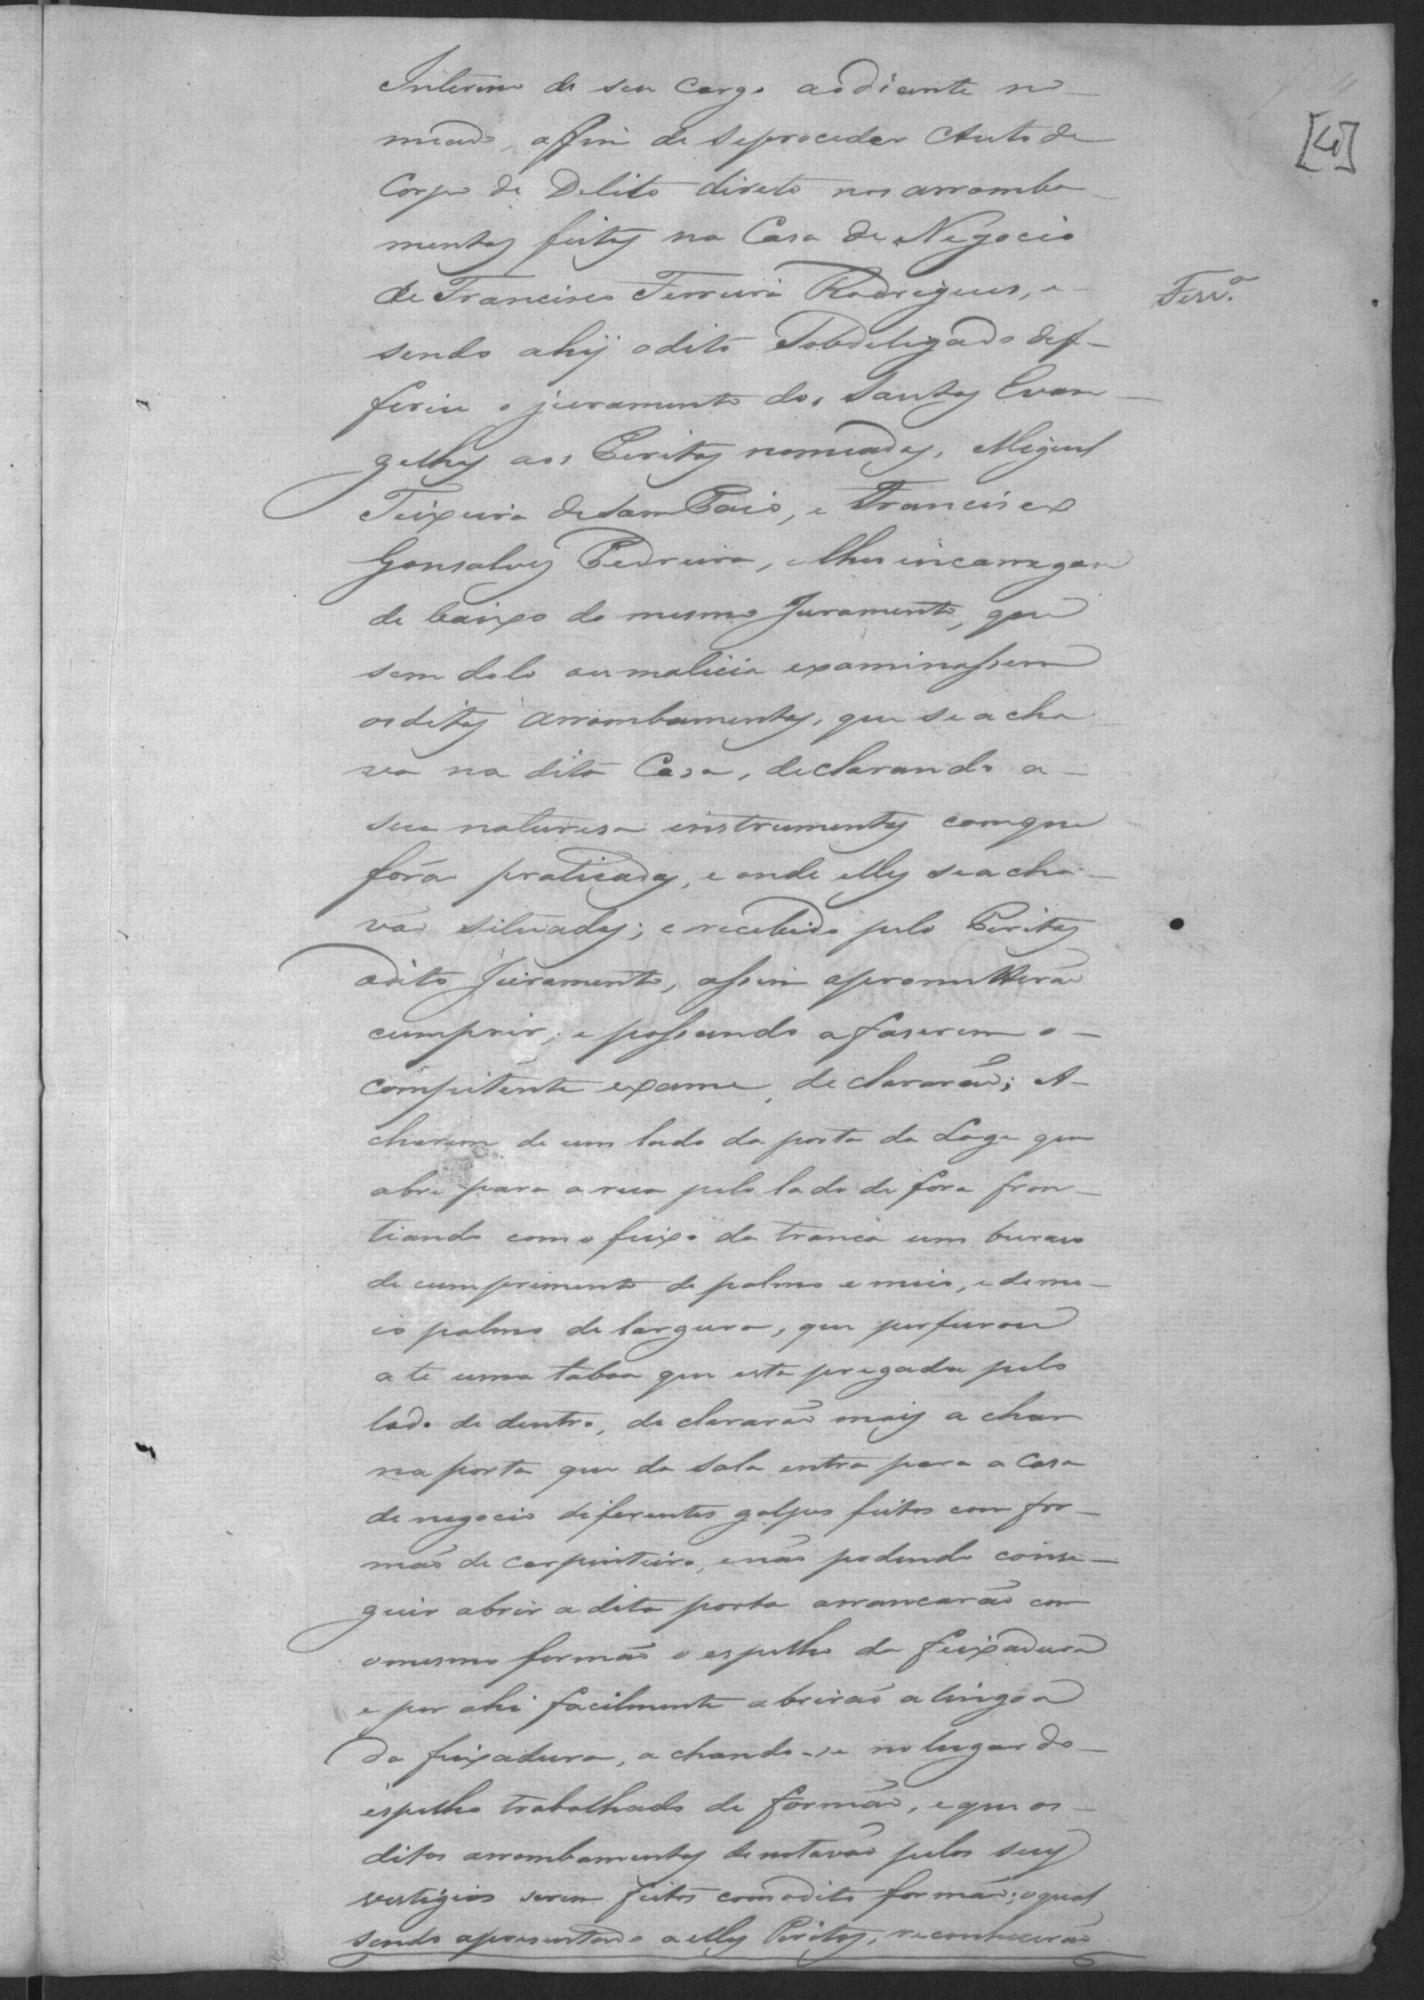 [4]
Interino de seu Cargo aodiante no-
miado, affim de seproceder Auto de
Corpo de Delito direto nos arromba-
mentos feitos na Casa de Negocio
de Francisco Ferreira Rodrigues, e-
Ferr.ª
sendo ahÿ odito Sobdelegado def-
feriu o juramento dos Santos Evan-
gelhos aos Peritos nomiados, Miguel
Teixeira de Sam Paio, e Francisco
Gonsalves Pedreira, elhes incarregou
de baixo do mesmo Juramento, que
sem dolo ou malicia examinassem
os ditos arrombamentos, que se acha-
va na dita Casa, declarando a-
sua naturesa instrumentos comque
forão praticados, e onde elles seacha-
vão situados; e recebido pelo Peritos
odito Juramento, assim aprometterão
cumprir, e passando a faserem o-
competente exame, declararão; A-
charem de um lado da porta da Loge que
abre para a rua pelo lado de fora fron-
tiando com o feixo da tranca um buraco
de cumprimento de palmo e meio, e de me-
io palmo de largura, que perfurou
a te uma taboa que esta pregada pelo
lado de dentro, declararão mais a char
na porta que da sala entra para a Casa
de negocio diferentes golpes feitos com for-
mão de carpinteiro, enão podendo conse-
guir abrir a dita porta arrancarão com
omesmo formão o espelho da feixadura
e por ahi facilmente abrirão a lingoa
da feixadura, a chando-se no lugar do-
espelho trabalhado de formão, e que os-
ditos arrombamentos denotavão pelos seus
vestigios serem feitos comodito formão; oqual
sendo apresentado a elles Peritos, reconhecerão